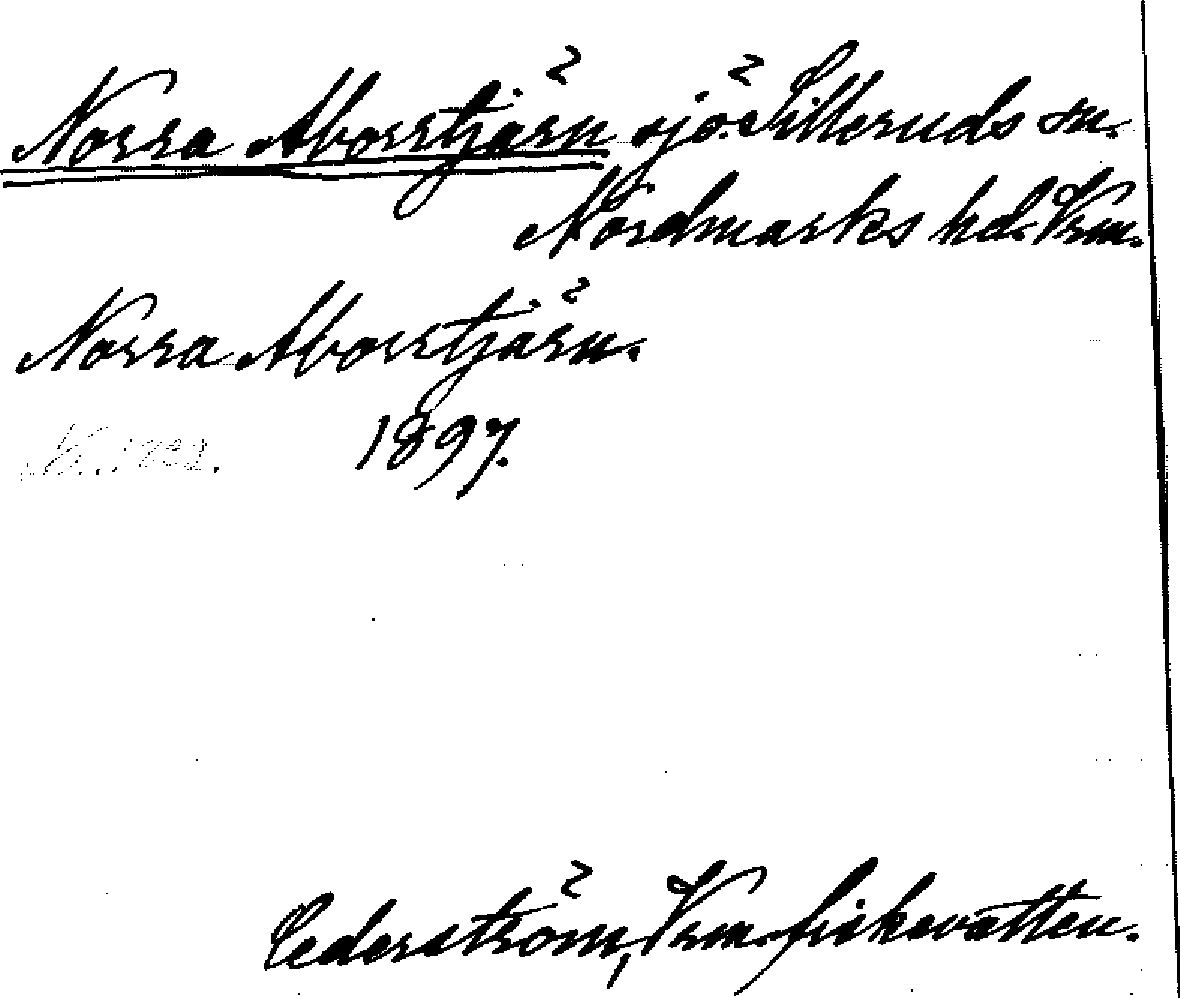 Norra Aborrtjärn sjö. Silleruds sn.
Nordmarks hd. Vrm.
Norra Aborrtjärn.
1897.
Cederström, Vrm. fiskevatten.